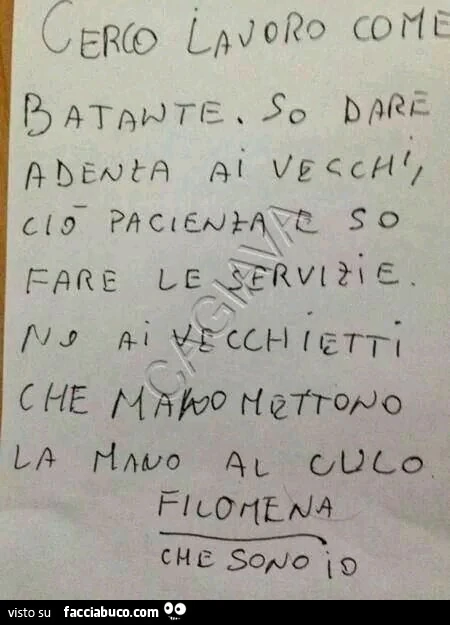 CERCO LAVORO COME
BATANTE. SO DARE
ADENZA AI VECCHI,
CIÒ PACIENZA E SO
FARE LE SERVIZIE.
NO AI VECCHIETTI
CHE METTONO
LA MANO AL CULO.
FILOMENA
CHE SONO IO
CAGIVA
visto su facciabuco.com